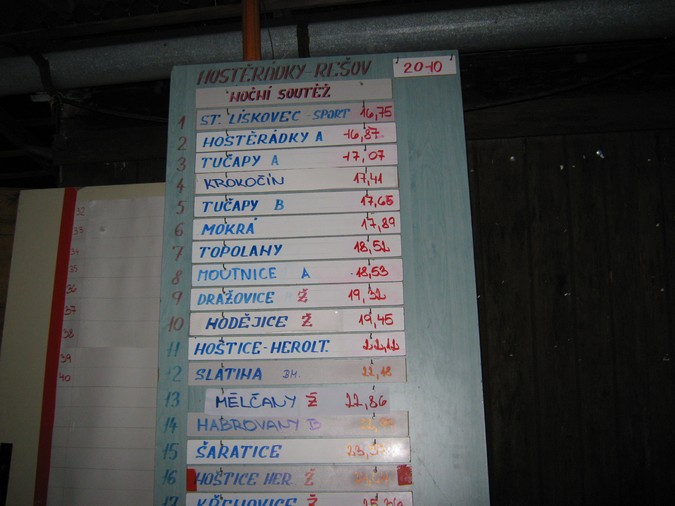 HOSTĚRÁDKY-REŠOV 2010
NOČNÍ SOUTĚŽ
1 ST. LÍSKOVEC - SPORT 16,75
2 HOSTĚRÁDKY A 16,87
3 TUČAPY A 17,07
4 KROKOČÍN 17,41
5 TUČAPY B 17,65
6 MOKRÁ 17,89
7 TOPOLANY 18,52
8 MOUTNICE A 18,53
9 DRAŽOVICE Ž 19,32
10 HODĚJICE Ž 19,45
11 HOŠTICE-HEROLT. 22,12
12 SLATINA BM. 22,18
13 MĚLČANY Ž 22,86
14 HABROVANY B
15 ŠARATICE
16 HOŠTICE HER. Ž
17 KŘENOVICE Ž
32
33
34
35
36
37
38
39
40